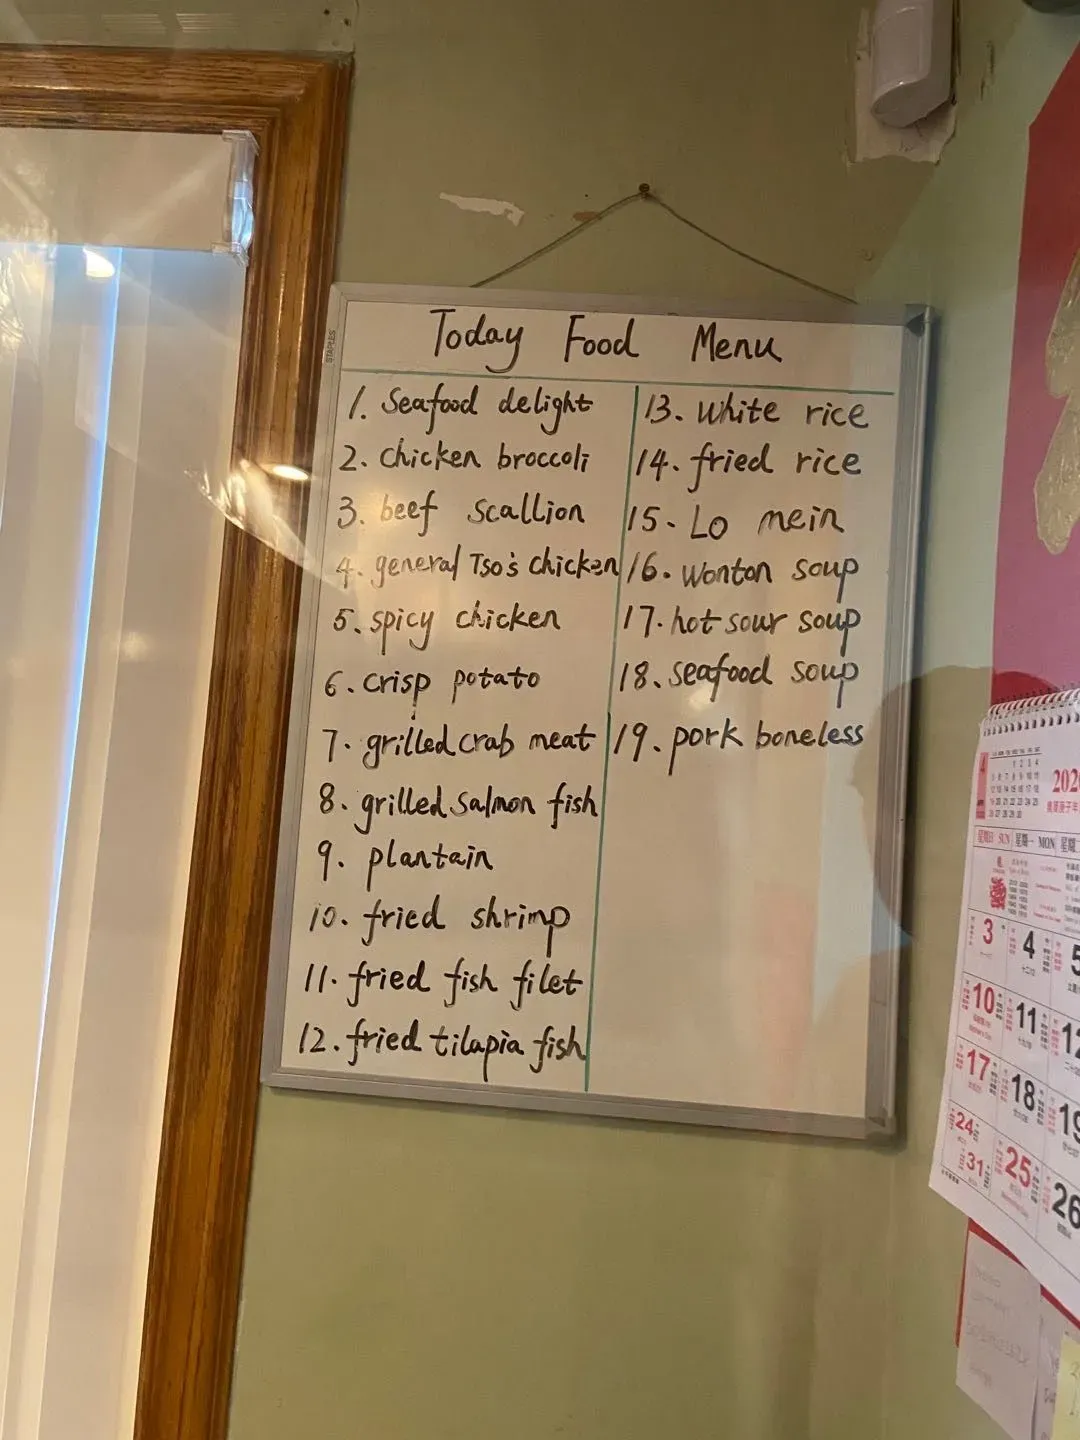 STAPLES
Today Food Menu
1. Seafood delight
2. chicken broccoli
3. beef scallion
4. general Tso's chicken
5. spicy chicken
6. crisp potato
7. grilled crab meat
8. grilled salmon fish
9. plantain
10. fried shrimp
11. fried fish filet
12. fried tilapia fish
13. white rice
14. fried rice
15. Lo mein
16. wonton soup
17. hot sour soup
18. seafood soup
19. pork boneless
4
202
星期日 SUN 星期一 MON 星期
3 4 5
10 11 12
17 18 19
24 25 26
31